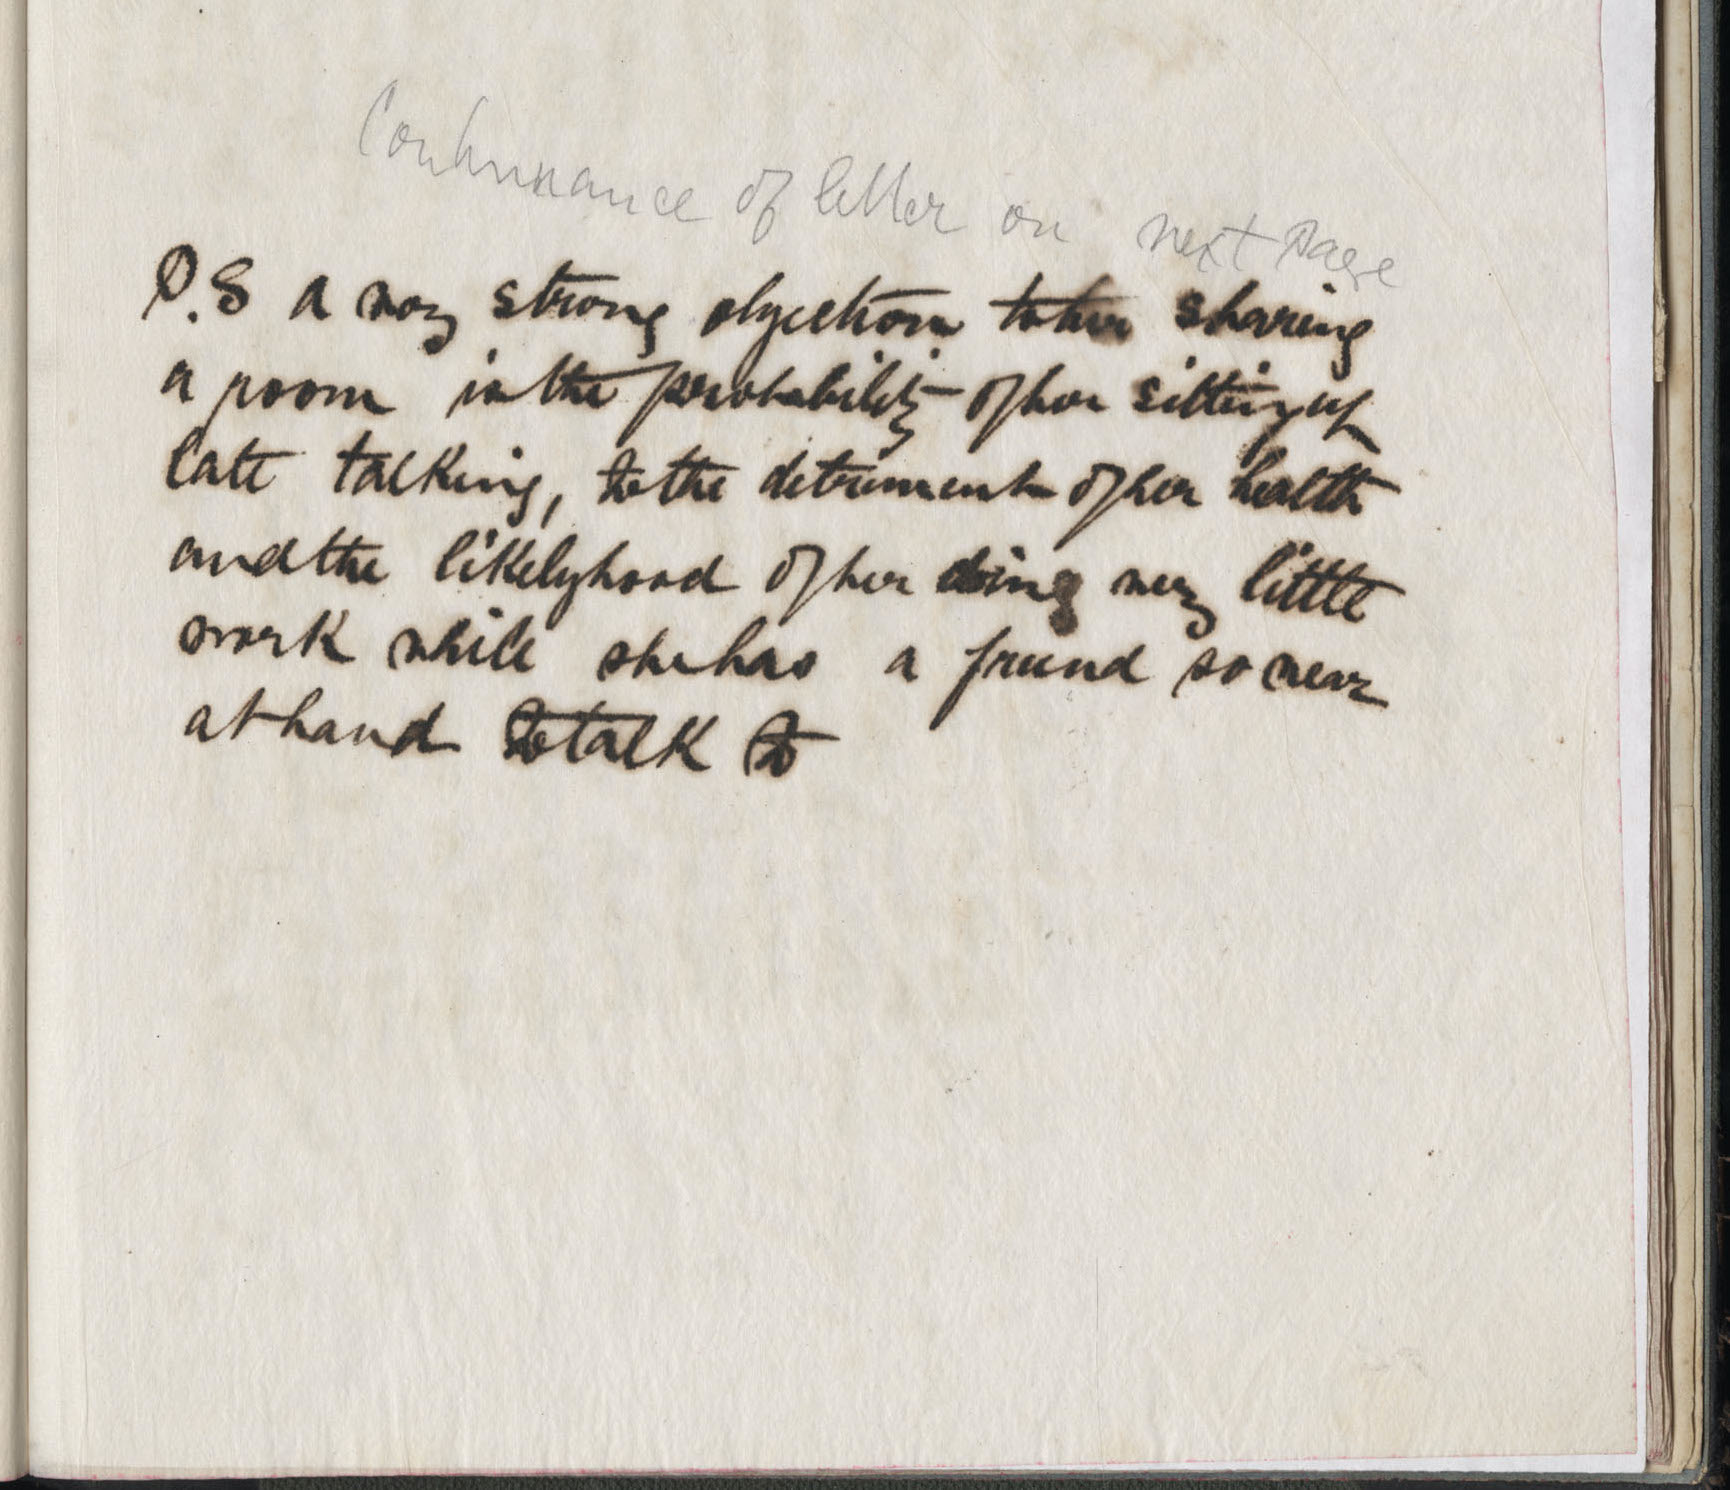 Continuance of letter on next page
P.S a very strong objection to her sharing
a room is the probability of her sitting up
late talking, to the detriment of her health
and the likelyhood of her doing very little
work while she has a friend so near
at hand to talk to